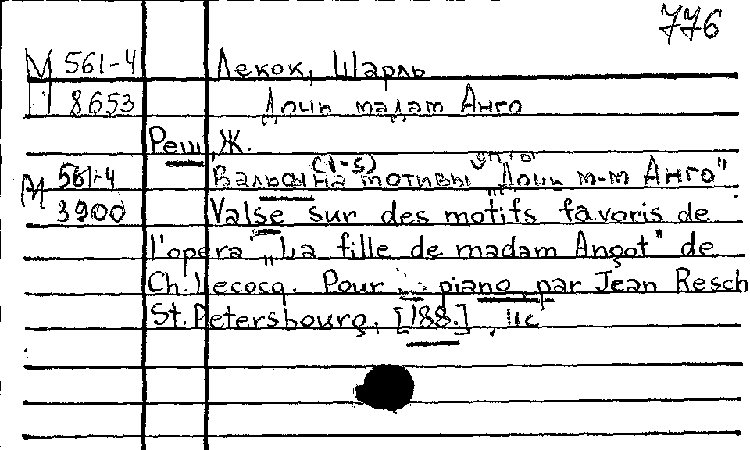 776
М 561-4 Лекок, Шарль
8653 Дочь мадам Анго
Реш, Ж.
(1-5)
М 561-4 Вальсы на мотивы "Дочь м-м Анго"
3900 Valse sur des motifs favoris de
l'opera „La fille de madam Angot" de
Ch. Lecocq. Pour piano par Jean Resch
St. Petersbourg, [188.]